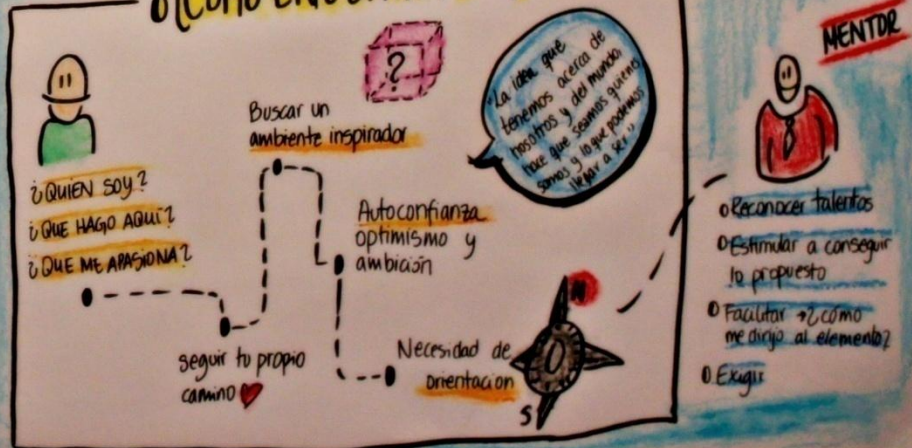 ¿QUIEN SOY?
¿QUE HAGO AQUÍ?
¿QUE ME APASIONA?
seguir tu propio
camino
Buscar un
ambiente inspirador
?
Autoconfianza
optimismo y
ambición
Necesidad de
orientacion
N
S
"La idea que
tenemos acerca de
nosotros y del mundo,
hace que seamos quienes
somos y lo que podemos
llegar a ser."
MENTOR
Reconocer talentos
Estimular a conseguir
lo propuesto
Facilitar → ¿cómo
me dirijo al elemento?
Exigir